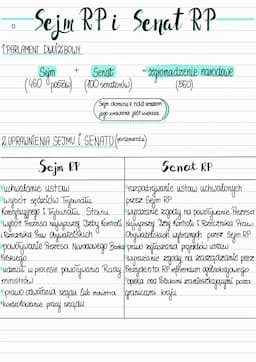 Sejm RP i Senat RP
1. PARLAMENT DWUIZBOWY:
Sejm + Senat - zgromadzenie narodowe
(460 posłów) (100 senatorów) (560)
Sejm dominuje nad senatem
jego znaczenie jest większe
2. UPRAWNIENIA SEJMU I SENATU (porównanie)
Sejm RP
uchwalanie ustaw
wybór sędziów Trybunału
Konstytucyjnego i Trybunału Stanu
wybór Prezesa Najwyższej Izby Kontroli
i Rzecznika Praw Obywatelskich
powoływanie Prezesa Narodowego Banku
Polskiego
udział w procesie powoływania Rady
ministrów
prawo odwołania rządu lub ministra
kontrolowanie pracy rządu
Senat RP
rozpatrywanie ustaw uchwalonych
przez Sejm RP
wyrażanie zgody na powoływanie Prezesa
Najwyższej Izby Kontroli i Rzecznika Praw
Obywatelskich wybranych przez Sejm RP
prawo zgłaszania projektów ustaw
wyrażanie zgody na zarządzanie przez
Prezydenta RP referendum ogólnokrajowego
opieka nad Polakami zamieszkującymi poza
granicami kraju